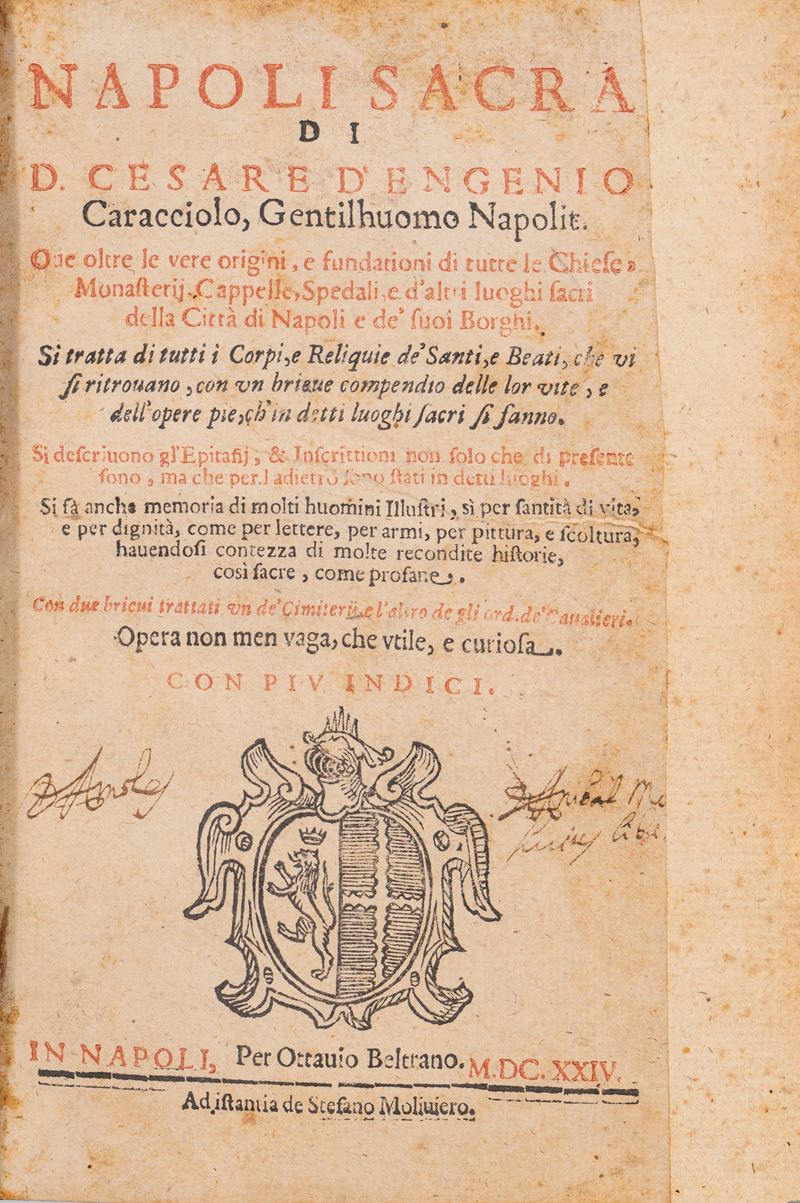 NAPOLI SACRA
DI
D. CESARE D'ENGENIO
Caracciolo, Gentilhuomo Napolit.
Oue oltre le vere origini, e fundationi di tutte le Chiese,
Monaſterij, Cappelle, Spedali, e d'altri luoghi ſacri
della Città di Napoli e de' ſuoi Borghi.
Si tratta di tutti i Corpi, e Reliquie de' Santi, e Beati, che vi
ſi ritrouano, con vn brieue compendio delle lor vite, e
dell'opere pie, ch'in detti luoghi ſacri ſi fanno.
Si deſcriuono gl'Epitafij, & Inſcrittioni non ſolo che di preſente
ſono, ma che per l adietro ſono ſtati in detti luoghi.
Si fà anche memoria di molti huomini Illuſtri, sì per ſantità di vita,
e per dignità, come per lettere, per armi, per pittura, e ſcoltura,
hauendoſi contezza di molte recondite hiſtorie,
così ſacre, come profane.
Con due brieui trattati vn de' Cimiterij, e l'altro de gli ord. de' Caualieri.
Opera non men vaga, che vtile, e curioſa.
CON PIV INDICI.
IN NAPOLI, Per Ottauio Beltrano. M.DC.XXIV.
Ad iſtantia de Stefano Moliuiero.